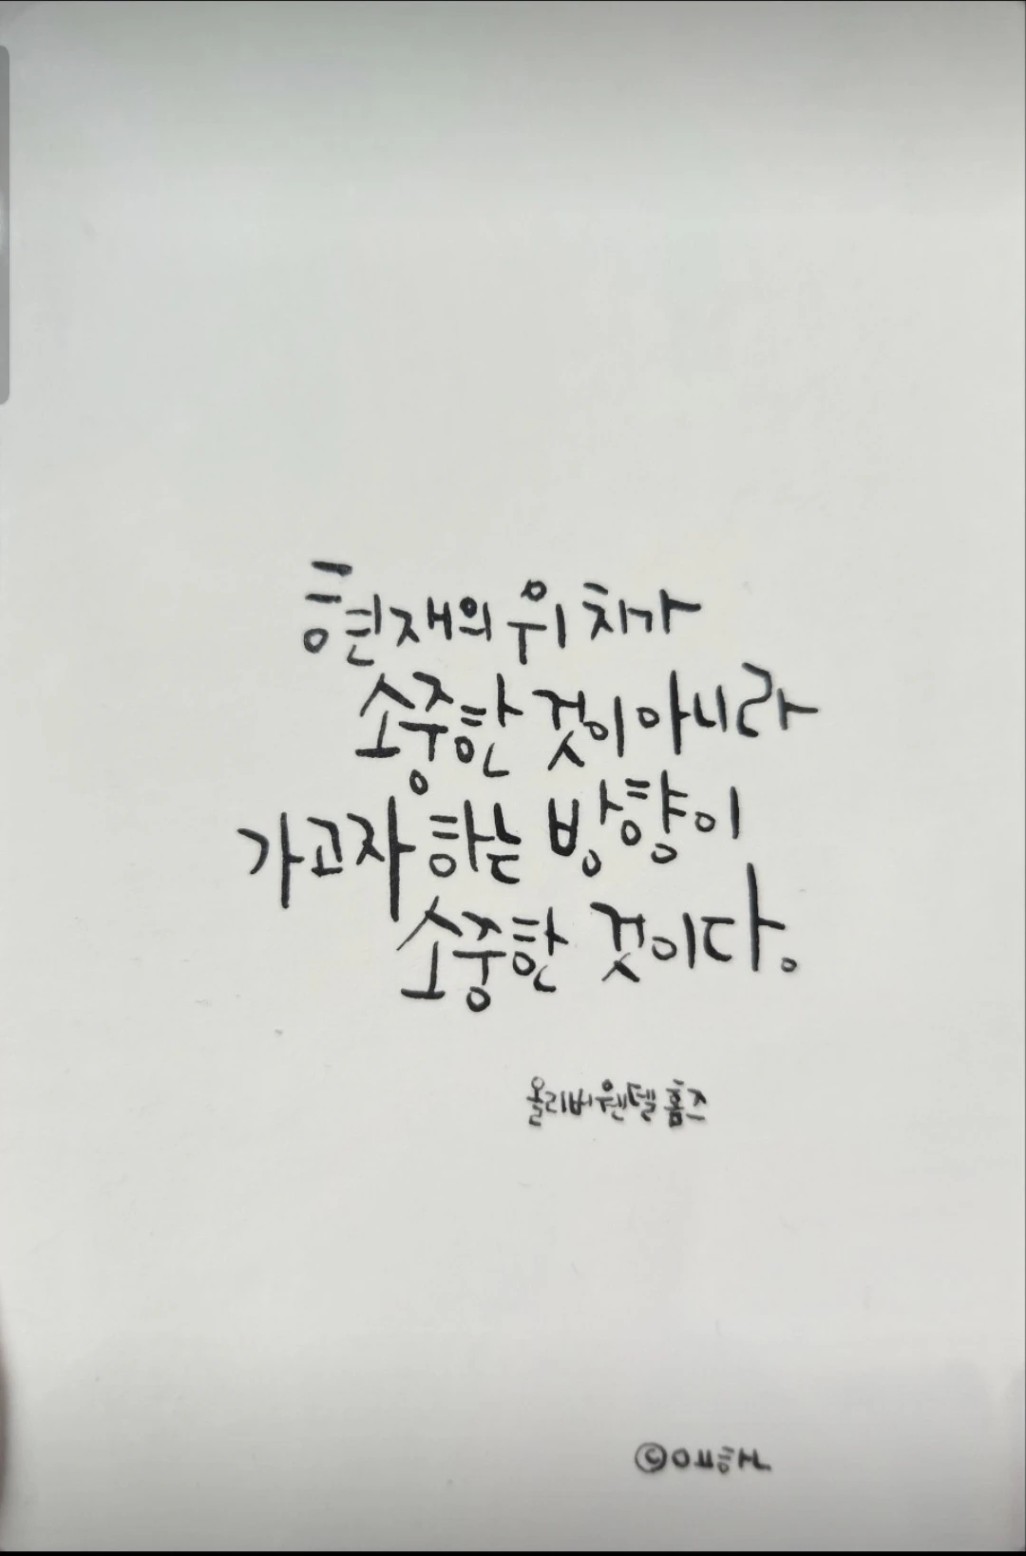 현재의 위치가
소중한 것이 아니라
가고자 하는 방향이
소중한 것이다.
올리버 웬델 홈즈
©